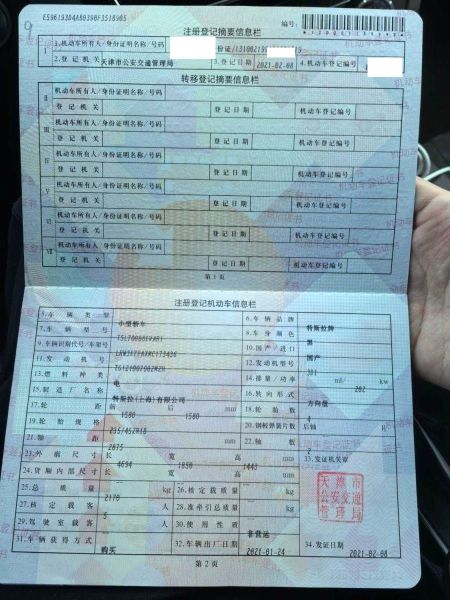 E59619304A80390F3518905
注册登记摘要信息栏
编号:
1.机动车所有人/身份证明名称/号码
2.登记机关 天津市公安交通管理局 3.登记日期 2021-02-08 4.机动车登记编号
转移登记摘要信息栏
II 机动车所有人/身份证明名称/号码
登记机关 登记日期 机动车登记编号
III 机动车所有人/身份证明名称/号码
登记机关 登记日期 机动车登记编号
IV 机动车所有人/身份证明名称/号码
登记机关 登记日期 机动车登记编号
V 机动车所有人/身份证明名称/号码
登记机关 登记日期 机动车登记编号
VI 机动车所有人/身份证明名称/号码
登记机关 登记日期 机动车登记编号
VII 机动车所有人/身份证明名称/号码
登记机关 登记日期 机动车登记编号
第1页
注册登记机动车信息栏
5.车辆类型 小型轿车 6.车辆品牌 特斯拉牌
7.车辆型号 8.车身颜色 黑
9.车辆识别代号/车架号 10.国产/进口 国产
11.发动机号 12.发动机型号
13.燃料种类 电 14.排量/功率 ml/ 202 kw
15.制造厂名称 特斯拉(上海)有限公司 16.转向形式 方向盘
17.轮距 前 1580 后 1580 mm 18.轮胎数
19.轮胎规格 235/45ZR18 20.钢板弹簧片数 后轴
21.轴距 2875 mm 22.轴数 2
23.外廓尺寸 长 4694 宽 1850 高 1443 mm 33.发证机关章
24.货厢内部尺寸 长 宽 高 mm
25.总质量 2170 kg 26.核定载质量 kg
27.核定载客 人 28.准牵引总质量 kg
29.驾驶室载客 人 30.使用性质 非营运
31.车辆获得方式 购买 32.车辆出厂日期 2021-01-24 34.发证日期 2021-02-08
天津市
公安交通
管理局
第2页